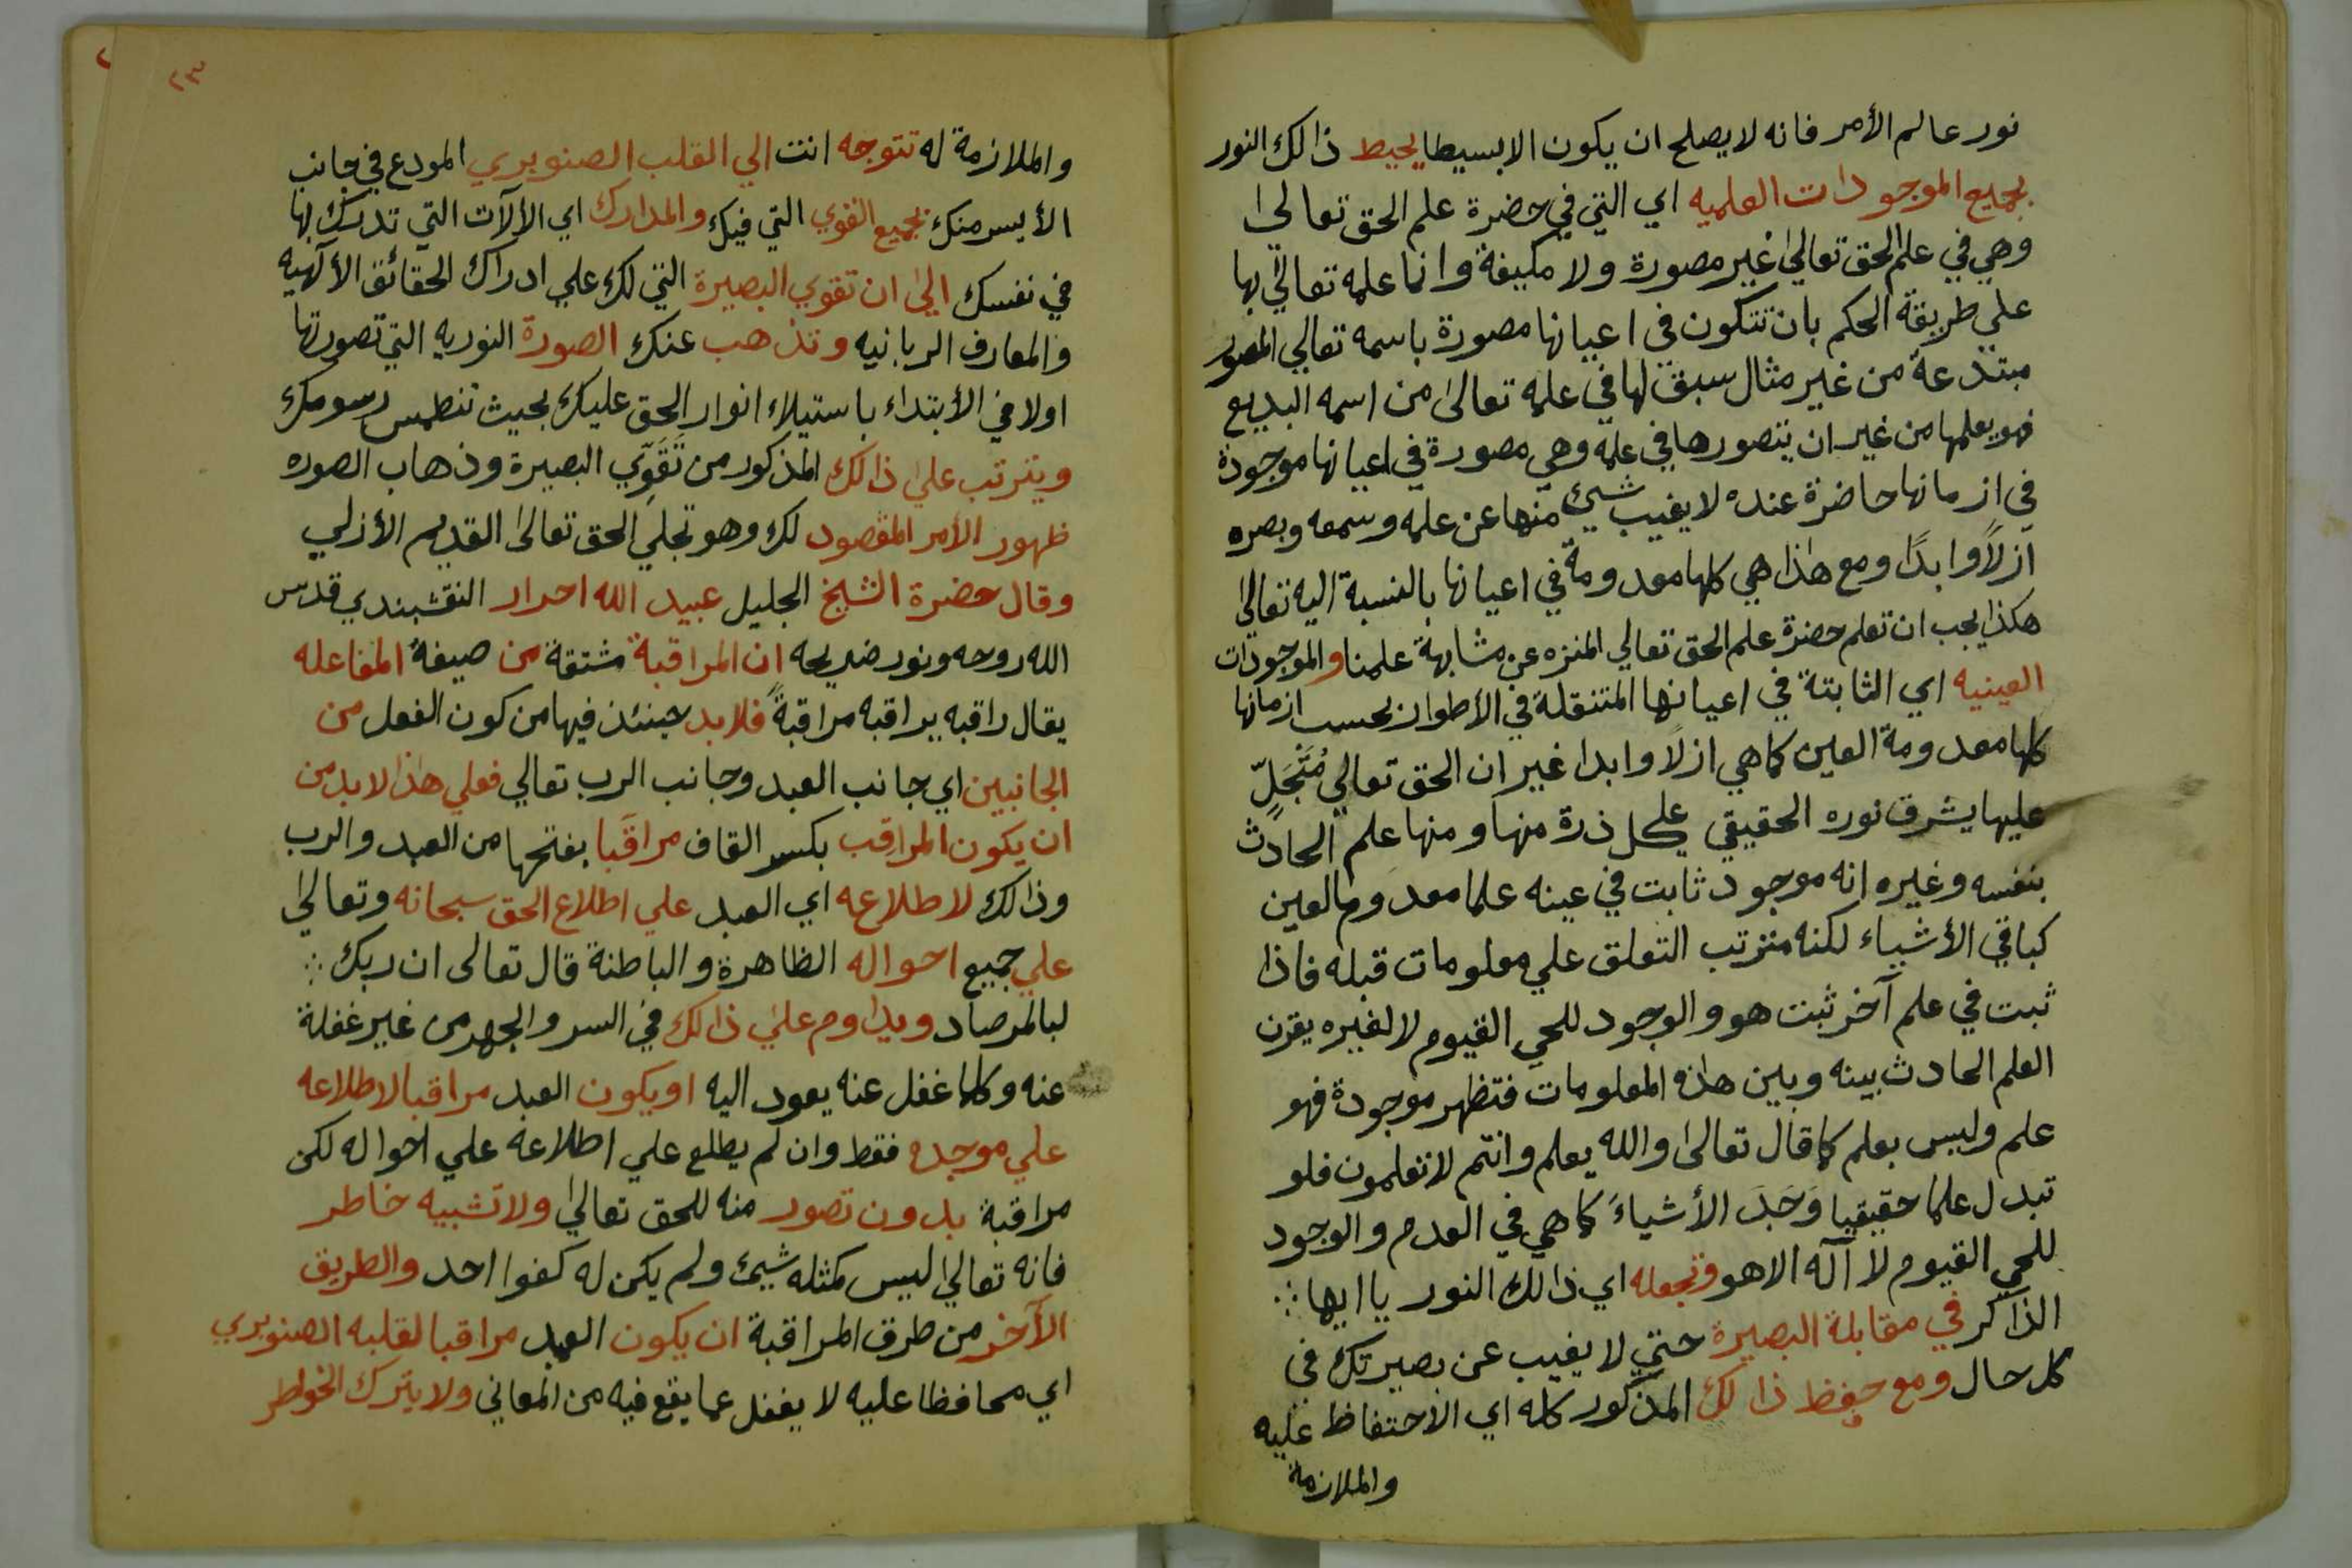 نور عالم الأمر فانه لا يصلح ان يكون الا بسيطا يحيط ذالك النور
بجميع الموجودات العلميه اي التي في حضرة علم الحق تعالى
وهي في علم الحق تعالى غير مصورة ولا مكيفة وانما علمه تعالى بها
علي طريقة الحكم بان تتكون في اعيانها مصورة باسمه تعالي المصور
مبتدعة من غير مثال سبق لها في علمه تعالى من اسمه البديع
فهو يعلمها من غير ان يتصورها في علمه وهي مصورة في اعيانها موجودة
في ازمانها حاضرة عنده لا يغيب شيئ منها عن علمه وسمعه وبصره
ازلاً وابدًا ومع هذا هي كلها معدومة في اعيانها بالنسبة اليه تعالى
هكذا يجب ان تعلم حضرة علم الحق تعالي المنزه عن مشابهة علمنا والموجودات
العينيه اي الثابتة في اعيانها المتنقلة في الأطوار بحسب ازمانها
كلها معدومة العين كما هي ازلًا وابدا غير ان الحق تعالي مُتَجَلٍّ
عليها يشرق نوره الحقيقي علي كل ذرة منها ومنها علم الحادث
بنفسه وغيره انه موجود ثابت في عينه علما معدوم العين
كباقي الأشياء لكنه مترتب التعلق علي معلومات قبله فاذا
ثبت في علم آخر ثبت هو والوجود للحي القيوم لا لغيره يقرن
العلم الحادث بينه وبين هذه المعلومات فتظهر موجودة فهو
علم وليس بعلم كما قال تعالى والله يعلم وانتم لا تعلمون فلو
تبدل علما حقيقيا وَجَدَ الأشياءَ كما هي في العدم والوجود
للحي القيوم لا آله الا هو وتجعله اي ذالك النور يا ايها ؞
الذاكر في مقابلة البصيرة حتي لا يغيب عن بصيرتك في
كل حال ومع حفظ ذالك المذكور كله اي الأحتفاظ عليه
والملازمة
٢٣
والملازمة له تتوجه انت الي القلب الصنوبري المودع في جانب
الأيسر منك بجميع القوي التي فيك والمدارك اي الألآت التي تدرك بها
في نفسك الى ان تقوي البصيرة التي لك علي ادراك الحقائق الألهيه
والمعارف الربانيه وتذهب عنك الصورة النوريه التي تصورتها
اولا في الأبتداء باستيلاء انوار الحق عليك بحيث تنطمس رسومك
ويترتب على ذالك المذكور من تَقَوِّي البصيرة وذهاب الصوره
ظهور الأمر المقصود لك وهو تجلي الحق تعالى القديم الأزلي
وقال حضرة الشيخ الجليل عبيد الله احرار النقشبندي قدس
الله روحه ونور ضريحه ان المراقبة مشتقة من صيغة المفاعله
يقال راقبه يراقبه مراقبةً فلابد حينئذ فيها من كون الفعل من
الجانبين اي جانب العبد وجانب الرب تعالي فعلي هذا لابد من
ان يكون المراقِب بكسر القاف مراقَبا بفتحها من العبد والرب
وذالك لاطلاعه اي العبد علي اطلاع الحق سبحانه وتعالى
علي جميع احواله الظاهرة والباطنة قال تعالى ان ربك ؞
لبالمرصاد ويداوم على ذالك في السر والجهر من غير غفلة
عنه وكلما غفل عنه يعود اليه او يكون العبد مراقبا لاطلاعه
علي موجده فقط وان لم يطلع علي اطلاعه علي احواله لكن
مراقبة بدون تصور منه للحق تعالى ولا تشبيه خاطر
فانه تعالى ليس كمثله شيئ ولم يكن له كفوا احد والطريق
الآخر من طرق المراقبة ان يكون العبد مراقبا لقلبه الصنوبري
اي محافظا عليه لا يغفل عما يقع فيه من المعاني ولا يترك الخواطر